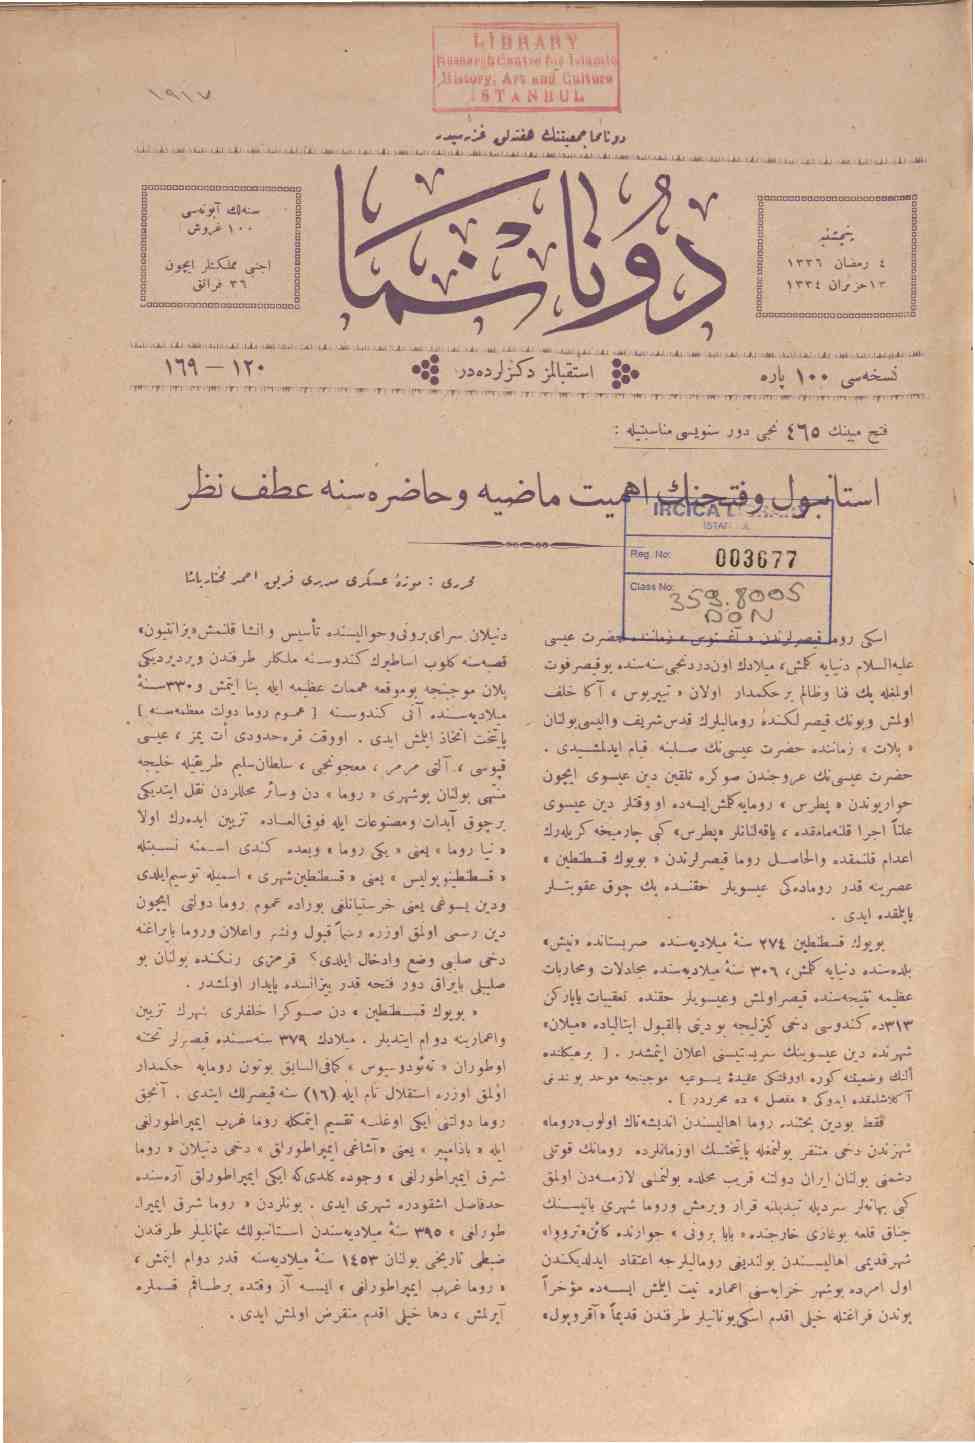 LIBRARY
Research Centre for Islamic
History, Art and Culture
ISTANBUL
١٩١٧
دونانما جمعيتنك هفته‌لق غزته‌سيدر
پنجشنبه
٤ رمضان ١٣٣٦
١٣ حزيران ١٣٣٤
دونانما
سنه‌لك آبونه‌سى
١٠٠ غروش
اجنبى مملكتلر ايچون
٣٦ فرانق
نسخه‌سى ١٠٠ پاره
استقبالمز دكزلرده‌در
١٢٠ — ١٦٩
فتح مبينك ٤٦٥ نجى دور سنويسى مناسبتيله :
استانبول وفتحنك اهميت ماضيه وحاضره‌سنه عطف نظر
IRCICA
ISTAN
Reg. No: 003677
Class No: 359.8005
DON
محررى : موزهٔ عسكرى مديرى فريق احمد مختار پاشا
اسكى روما قيصرلرندن « آغستوس » زماننده حضرت عيسى
عليه‌السلام دنيايه كلمش، ميلادك اون‌دردنجى سنه‌سنده بوقيصر فوت
اولمغله پك فنا وظالم بر حكمدار اولان « تيبريوس » آكا خلف
اولمش وبونك قيصرلكنده رومالیلرك قدس شريف واليسى بولنان
« پلات » زماننده حضرت عيسى‌نك صلبنه قيام ايدلمشيدى .
حضرت عيسى‌نك عروجندن صوكره تلقين دين عيسوى ايچون
حواريوندن « پطرس » رومايه كلمش ايسه‌ده او وقتلر دين عيسوى
علناً اجرا قلنه‌مامقده ، ياقه‌لنانلر «پطرس» كبى چارميخه كريله‌رك
اعدام قلنمقده والحاصل روما قيصرلرندن « بويوك قسطنطين »
عصرينه قدر روماده‌كى عيسويلر حقنده پك چوق عقوبتلر
ياپلمقده ايدى .
بويوك قسطنطين ٢٧٤ سنهٔ ميلاديه‌سنده صربستانده «نيش»
بلده‌سنده دنيايه كلمش، ٣٠٦ سنهٔ ميلاديه‌سنده مجادلات ومحاربات
عظيمه نتيجه‌سنده قيصر اولمش وعيسويلر حقنده تعقيبات ياپاركن
٣١٣ده كندوسى دخى كيزليجه بو دينى بالقبول ايتالياده «ميلان»
شهرنده دين عيسوينك سربستيسنى اعلان ايتمشدر . [ برهيكلنده
آلنك وضعيتنه كوره اووقتكى عقيدهٔ يسوعيه موجبنجه موحد بولندنى
آكلاشلمقده ايدوكى « مفصل » ده محرردر ] .
فقط بودين بحثنده روما اهاليسندن انديشه‌ناك اولوب «روما»
شهرندن دخى متنفر بولنمغله پايتختك اوزمانلرده رومانك قوتلى
دشمنى بولنان ايران دولتنه قريب محلده بولنمسى لازمه‌دن اولمق
كبى بهانه‌لر سرديله تبديلنه قرار ويرمش وروما شهرى بانيسنك
چناق قلعه بوغازى خارجنده « بابا برونى » جوارنده كائن «تروا»
شهر قديمى اهاليسندن بولنديغى رومالیلرجه اعتقاد ايدلديكندن
اول امرده بوشهر خرابه‌سنى اعماره نيت ايتمش ايسه‌ده مؤخراً
بوندن فراغتله خيلى اقدم اسكى يونانيلر طرفندن قديماً «آقروپول»
دنيلان سراى برونى وحواليسنده تأسيس وانشا قلنمش «بزانتيون»
قصبه‌سنه كلوب اساطيرك كندوسنه ملكلر طرفندن ويرديرديكى
پلان موجبنجه بوموقعه همات عظيمه ايله بنا ايتمش و ٣٣٠ سنهٔ
ميلاديه‌سنده آنى كندوسنه [ عموم روما دولت معظمه‌سنه ]
پايتخت اتخاذ ايلمش ايدى . اووقت قره حدودى آت يمز ، عيسى
قپوسى ، آلتى مرمر ، معجونجى ، سلطان‌سليم طريقيله خليجه
منتهى بولنان بوشهرى « روما » دن وسائر محللردن نقل ايتديكى
برچوق آبدات ومصنوعات ايله فوق‌العاده تزيين ايده‌رك اولا
« نيا روما » يعنى « يكى روما » وبعده كندى اسمنه نسبتله
« قسطنطينوپوليس » يعنى « قسطنطين شهرى » اسميله توسيم ايلدى
ودين يسوعى يعنى خرستيانلغى بوراده عموم روما دولتى ايچون
دين رسمى اولمق اوزره رسماً قبول ونشر واعلان وروما بايراغنه
دخى صليبى وضع وادخال ايلدى؟ قرمزى رنكنده بولنان بو
صليبلى بايراق دور فتحه قدر بيزانسده پايدار اولمشدر .
« بويوك قسطنطين » دن صوكرا خلفلرى شهرك تزيين
واعمارينه دوام ايتديلر . ميلادك ٣٧٩ سنه‌سنده قيصرلر تختنه
اوطوران « ته‌ئودوسيوس » كمافى‌السابق بوتون رومايه حكمدار
اولمق اوزره استقلال تام ايله (١٦) سنه قيصرلك ايتدى . آنجق
روما دولتنى ايكى اوغلنه تقسيم ايتمكله روما غرب ايمپراطورلغى
ايله « باذامپير » يعنى «آشاغى ايمپراطورلق » دخى دنيلان « روما
شرق ايمپراطورلغى » وجوده كلدى كه ايكى ايمپراطورلق آره‌سنده
حدفاصل اشقودره شهرى ايدى . بونلردن « روما شرق ايمپرا-
طورلغى » ٣٩٥ سنهٔ ميلاديه‌سندن استانبولك عثمانليلر طرفندن
ضبطى تاريخى بولنان ١٤٥٣ سنهٔ ميلاديه‌سنه قدر دوام ايتمش ،
« روما غرب ايمپراطورلغى » ايسه آز وقتده برطاقم قسملره
آيرلمش ، دها خيلى اقدم منقرض اولمش ايدى .